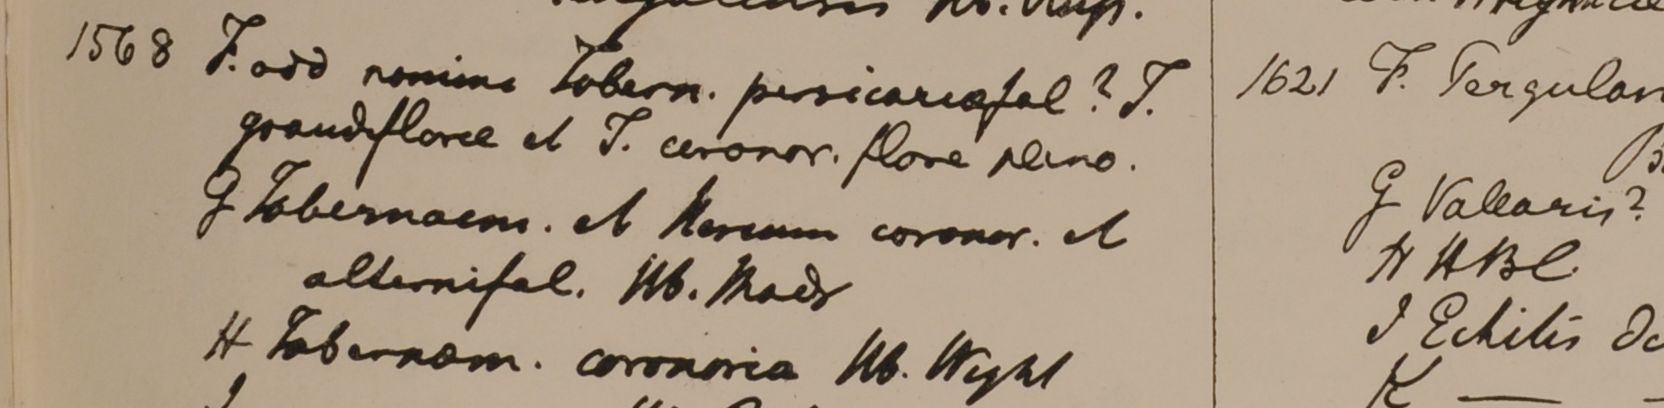 Hb. Russ.
1568 F. add nomina Tabern. persicariæfol? T.
grandiflorae et T. coronar. flore pleno.
G Tabernaem. et Nerium coronar. et
alternifol. Hb. Madr
H Tabernæm. coronoria Hb. Wight
1621 F. Pergular
G Vallaris?
H HBC
I Echitis
K —